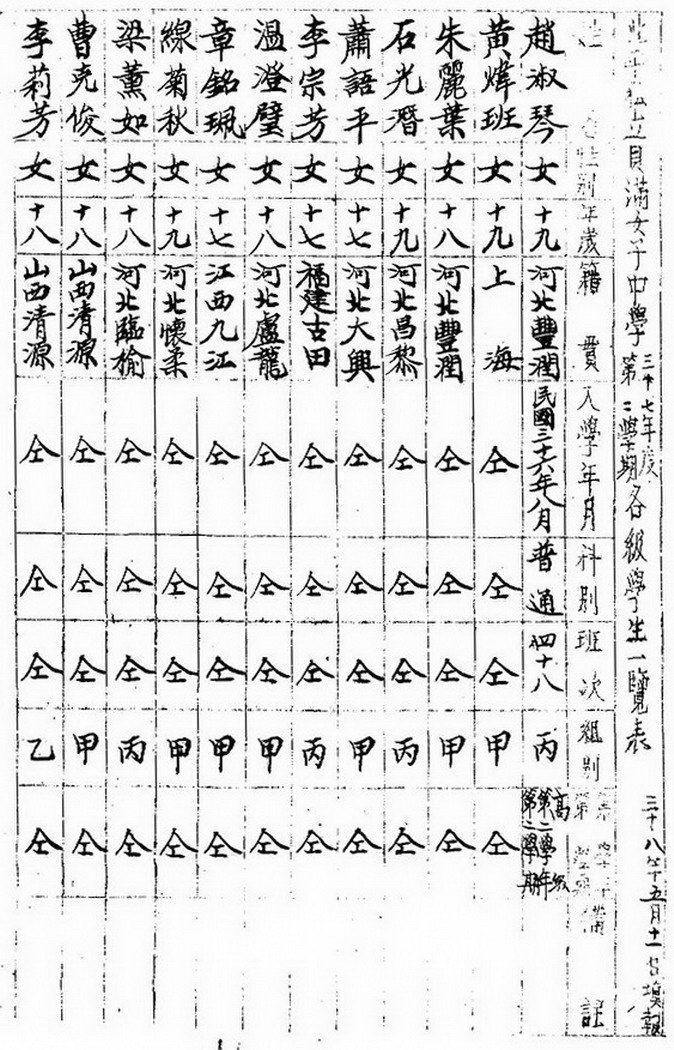 私立貝滿女子中學三十七年度第二學期各級學生一覽表 三十八年五月十一日填報
姓名 性別 年歲 籍貫 入學年月 科別 班次 組別 備註
趙淑琴 女 十九 河北豐潤 民國三十六年八月 普通 四十八 丙 高級第二學年第二學期
黃煒班 女 十九 上海 仝 仝 仝 甲 仝
朱麗葉 女 十八 河北豐潤 仝 仝 仝 甲 仝
石光潛 女 十九 河北昌黎 仝 仝 仝 丙 仝
蕭語平 女 十七 河北大興 仝 仝 仝 甲 仝
李宗芳 女 十七 福建古田 仝 仝 仝 丙 仝
溫澄璧 女 十八 河北盧龍 仝 仝 仝 甲 仝
章銘珮 女 十七 江西九江 仝 仝 仝 甲 仝
線菊秋 女 十九 河北懷柔 仝 仝 仝 甲 仝
梁薰如 女 十八 河北臨榆 仝 仝 仝 丙 仝
曹克俊 女 十八 山西清源 仝 仝 仝 甲 仝
李莉芳 女 十八 山西清源 仝 仝 仝 乙 仝